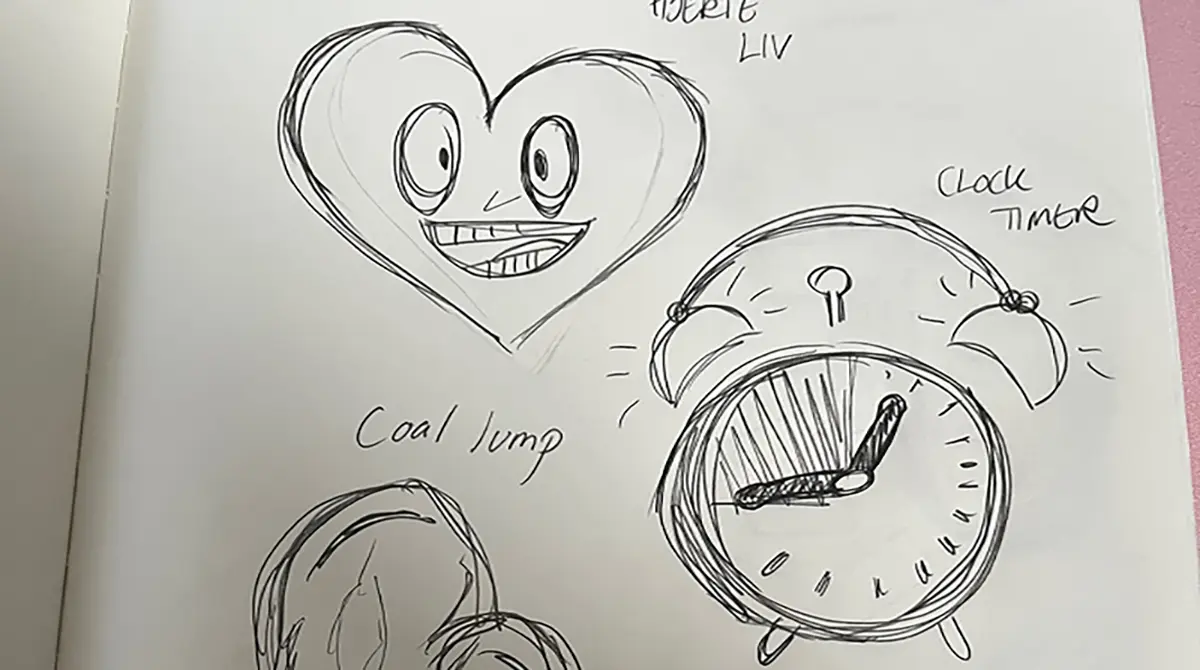 HJERTE
LIV
CLOCK
TIMER
Coal lump